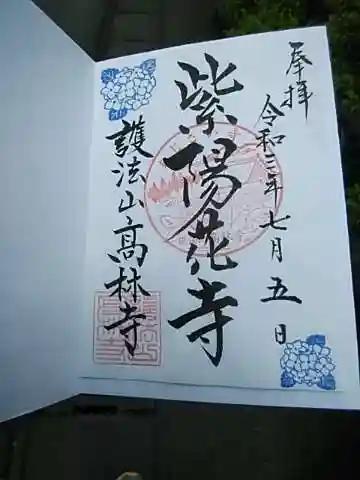 奉拝
令和三年七月五日
紫陽花寺
護法山高林寺